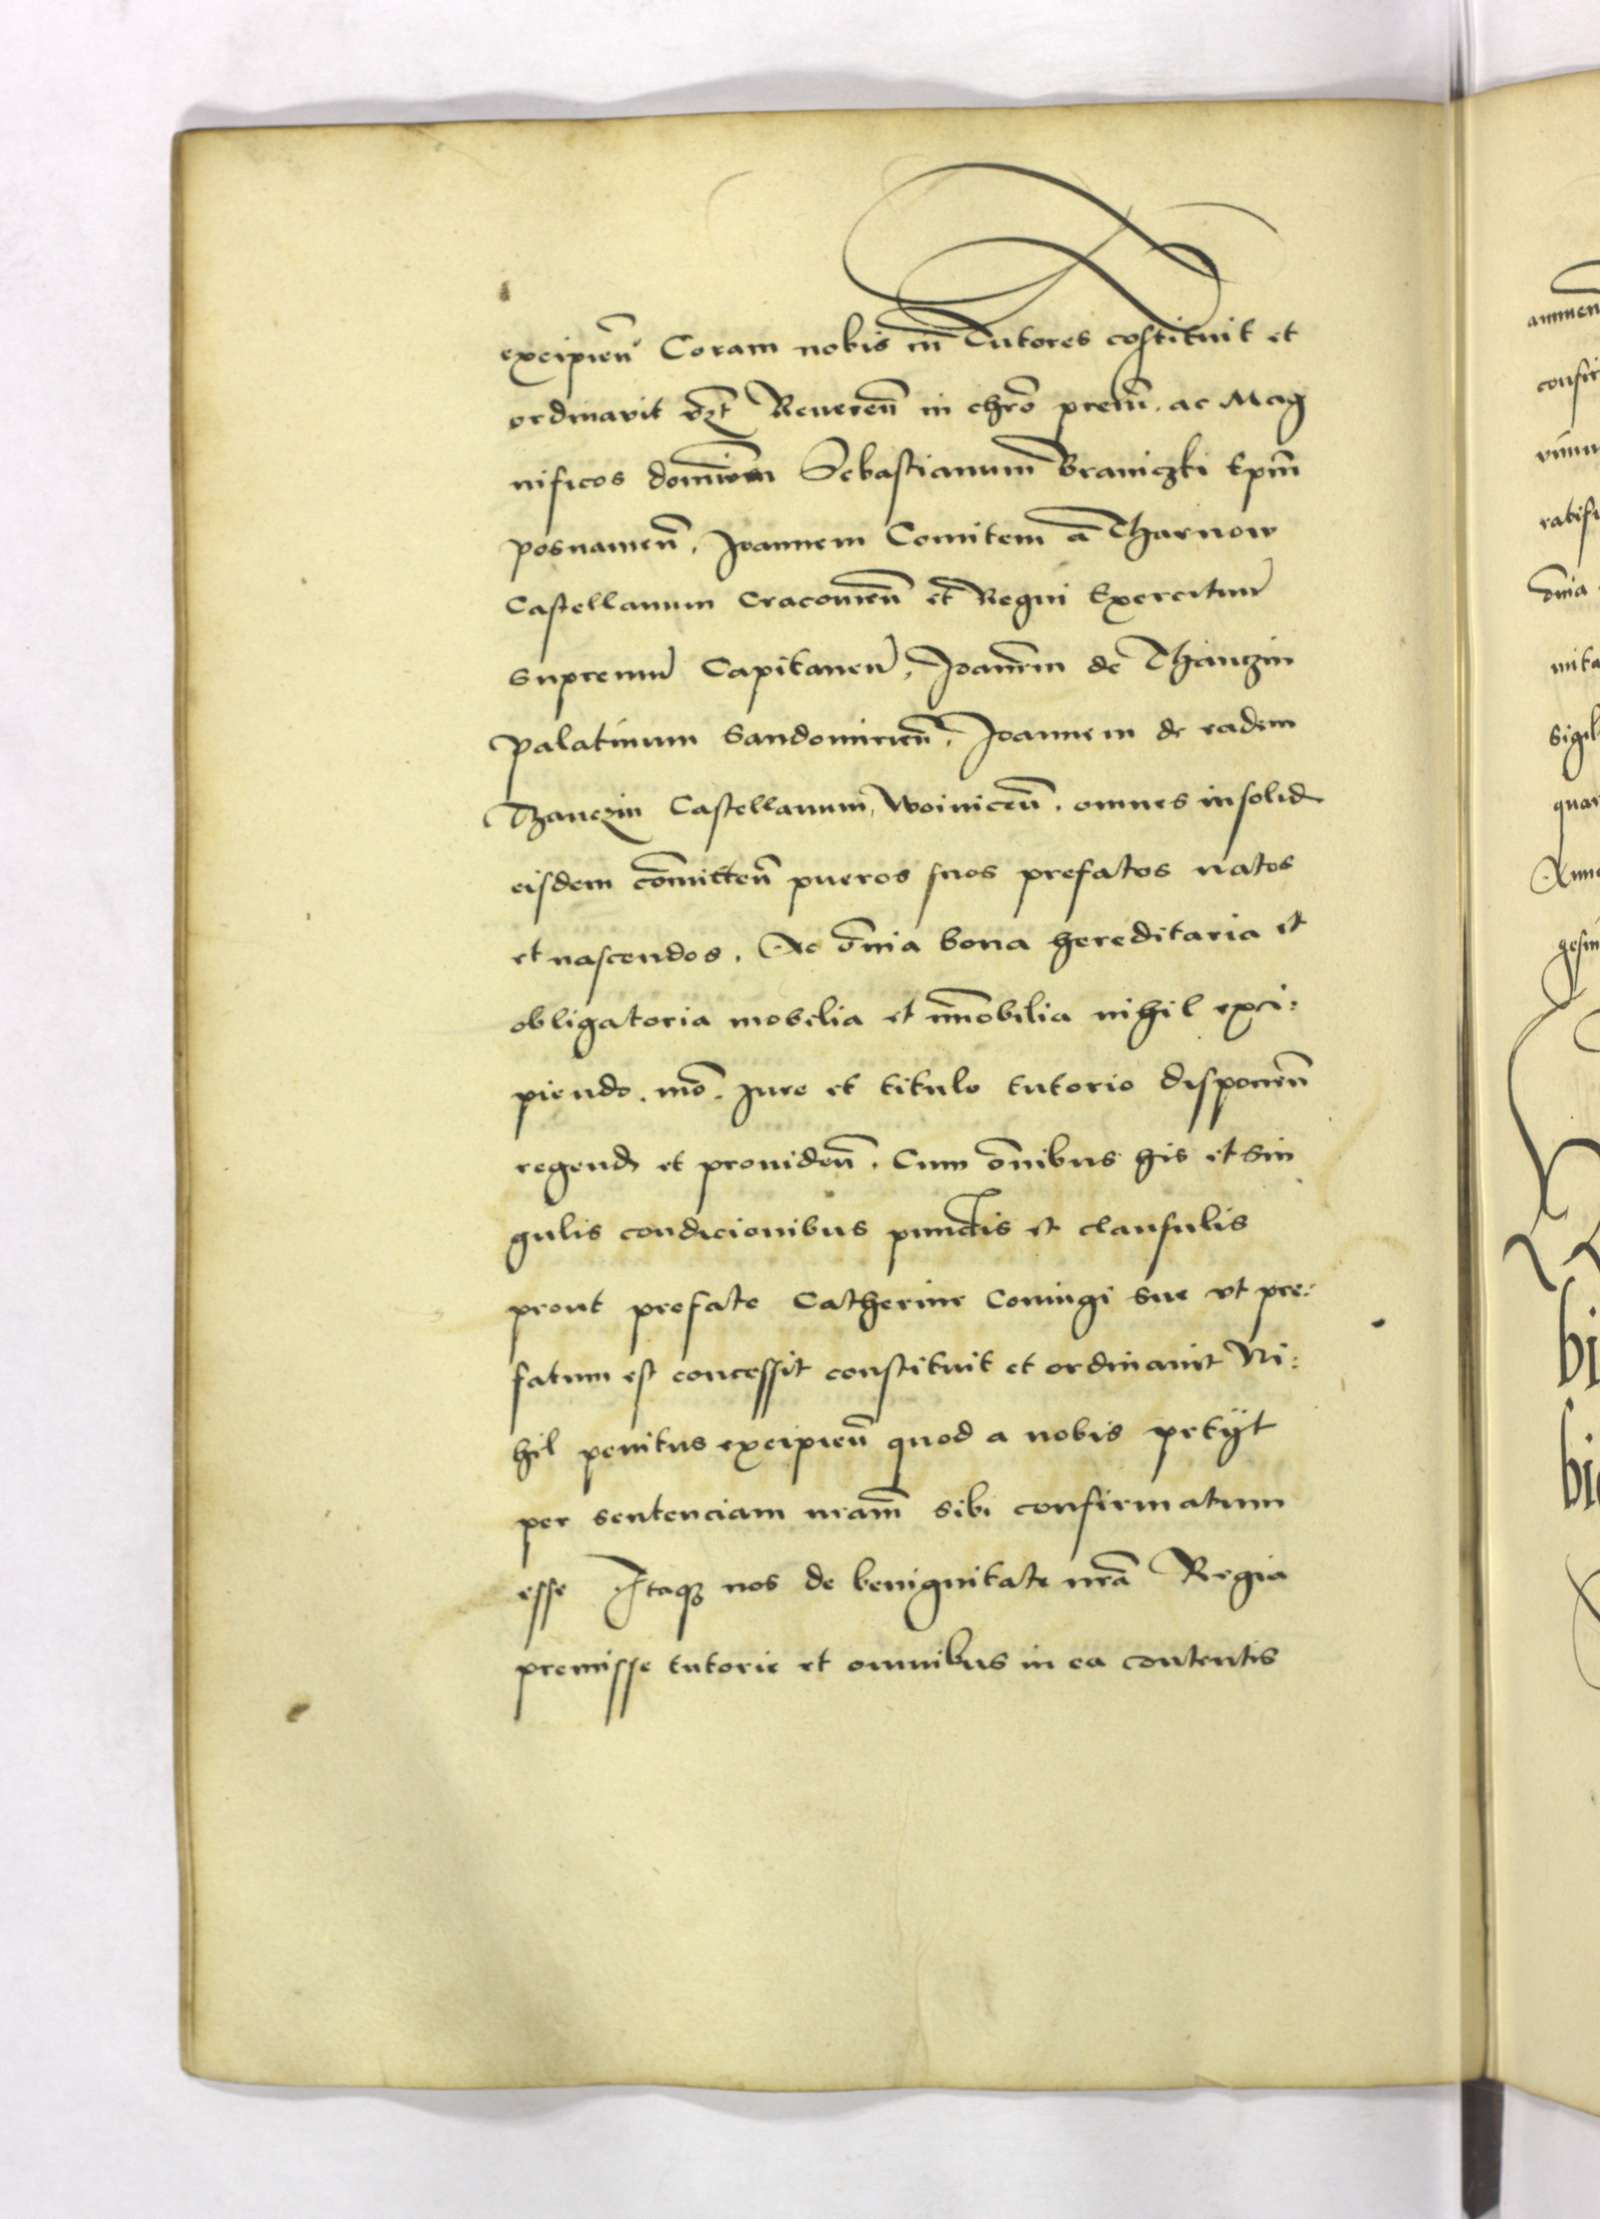 excipien̄ Coram nobis in̄ Tutores cōstituit et
ordinavit vz̄t Reueren̄ in chr̄o pr̄em. ac Mag
nificos dominum Sebastianum Braniczki Ep̄m
posnanien̄. Joannem Comitem a Tharnow
Castellanum Cracouien̄ et Regni Exercituū
supremū Capitaneū, Joannem de Thanczin
palatinum Sandomirien̄. Joannem de eadem
Thanczin Castellanum Woinicen̄. omnes insolid
eisdem com̄itten̄ pueros suos prefatos natos
et nascendos. Ac om̄ia bona hereditaria et
obligatoria mobilia et im̄obilia nihil exci:
piendo. mō. Jure et titulo tutorio disponen̄
regend et prouiden̄. Cum om̄ibus his et sin
gulis condicionibus punctis et clausulis
prout prefate Catherine Coniugi sue vt pre:
fatum est concessit constituit et ordinauit Ni:
hil penitus excipien̄ quod a nobis petijt
per sentenciam nr̄am sibi confirmatum
esse Itaq nos de benignitate nr̄a Regia
premisse tutorie et omnibus in ea contentis
confir
ratifi
mita
sigil
quar
Anno
gesim
bi